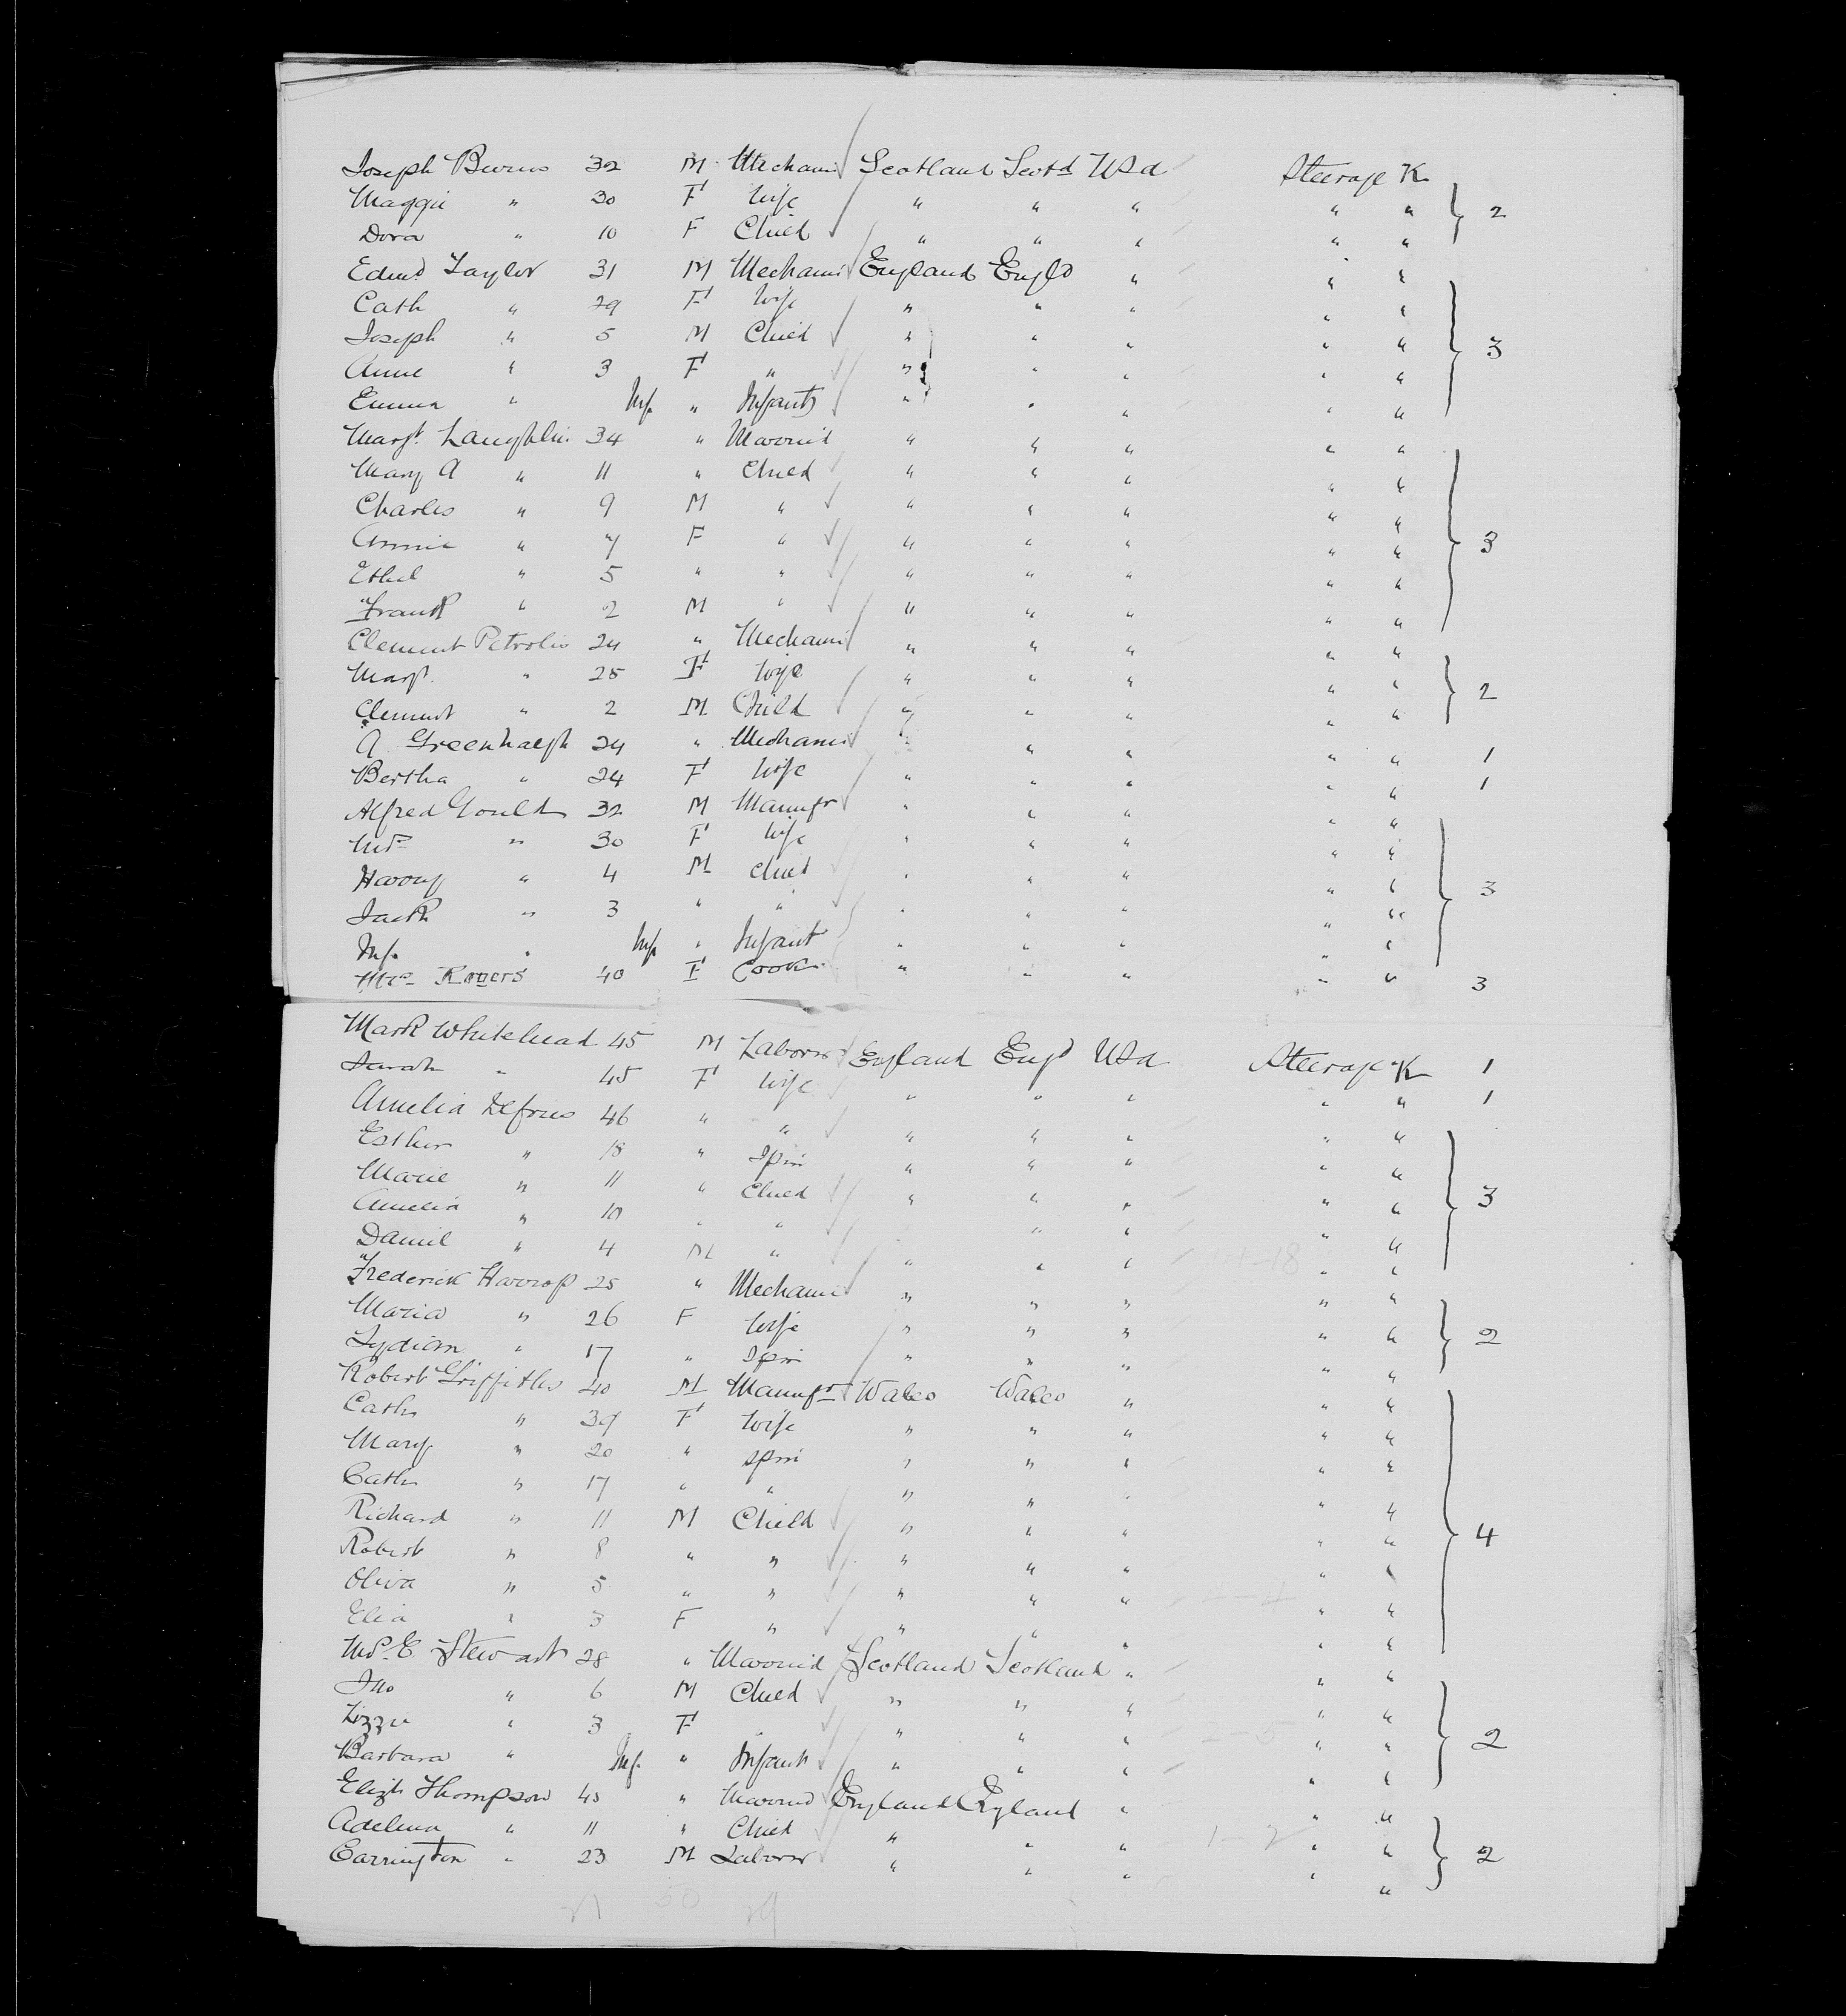 Joseph Burns 32 M Mechani Scotland Scotd USa Steerage K
Maggie " 30 F wife " " " " " 2
Dora " 10 F Child " " " " "
Edwd Taylor 31 M Mechani England Engld " " "
Cath " 29 F wife " " " " "
Joseph " 5 M Child " " " " " 3
Anne " 3 F " " " " " "
Emma " Inf. " Infants " " " " "
Margt. Laughlin 34 " Married " " " " "
Mary A " 11 " Child " " " " "
Charles " 9 M " " " " " "
Annie " 7 F " " " " " " 3
Ethel " 5 " " " " " " "
Frank " 2 M " " " " " "
Clement Petrolis 24 " Mechani " " " " "
Margt. " 25 F wife " " " " " 2
Clement " 2 M Child " " " " "
A Greenhalgh 24 " Mechani " " " " " 1
Bertha " 24 F wife " " " " " 1
Alfred Gould 32 M Manufr " " " " "
Mrs " 30 F wife " " " " "
Harry " 4 M Child " " " " " 3
Jack " 3 " " " " " " "
Inf. " Inf. " Infant " " " " "
Mrs Rogers 40 F Cook " " " " " 3
Mark Whitehead 45 M Laborer England Engd USa Steerage K 1
Sarah " 45 F wife " " " " " 1
Amelia Defries 46 " " " " " " "
Esther " 18 " Spin " " " " "
Marie " 11 " Child " " " " " 3
Amelia " 10 " " " " " "
Daniel " 4 M " " " " 1-18 " "
Frederick Harrop 25 " Mechani " " " " "
Maria " 26 F wife " " " " " 2
Lydian " 17 " Spin " " " " "
Robert Griffiths 40 M Manufr Wales Wales " " "
Cath " 39 F wife " " " " "
Mary " 20 " spin " " " " "
Cath " 17 " " " " " " "
Richard " 11 M Child " " " " " 4
Robert " 8 " " " " " " "
Oliva " 5 " " " " " " "
Elia " 3 F " " " " " "
Mrs. E Stewart 28 " Married Scotland Scotland " " "
Jno " 6 M Child " " " " "
Lizzie " 3 F " " " " " " 2
Barbara " Inf. " Infant " " " " "
Elizth Thompson 45 " Married England England " " "
Adelina " 11 " Child " " " 1-2 " " 2
Carrington " 23 M Laborer " " " " "